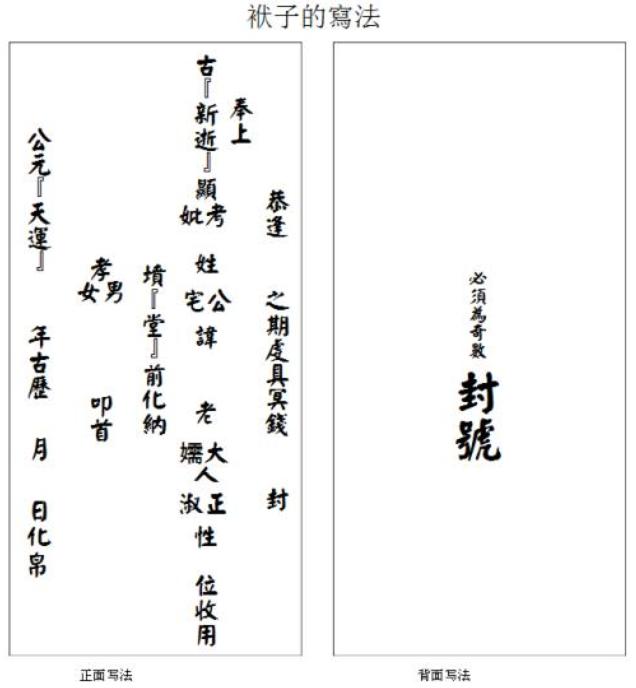 袱子的寫法
恭逢 之期虔具冥錢 封
奉上
古『新逝』顯考妣 姓公宅諱 老大人孺人正淑性 位收用
墳『堂』前化納
孝男女 叩首
公元『天運』 年古歷 月 日化帛
必須為奇數 封號
正面写法
背面写法